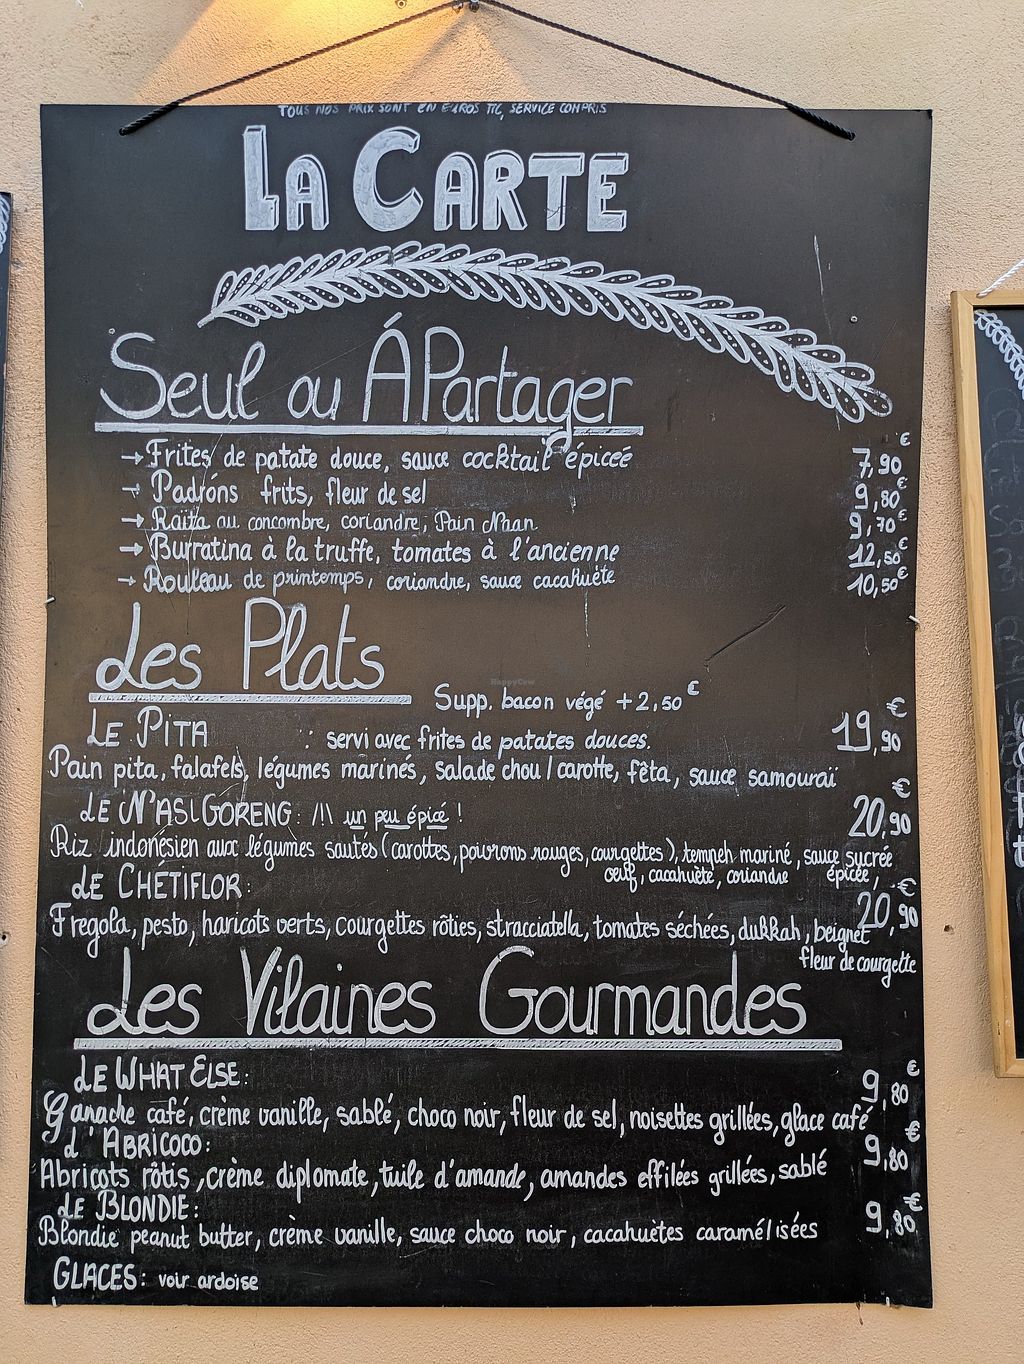 TOUS NOS PRIX SONT EN EUROS TTC, SERVICE COMPRIS
LA CARTE
Seul ou Á Partager
→ Frites de patate douce, sauce cocktail épicée 7,90€
→ Padróns frits, fleur de sel 9,80€
→ Raïta au concombre, coriandre, Pain Naan 9,70€
→ Burratina à la truffe, tomates à l'ancienne 12,50€
→ Rouleau de printemps, coriandre, sauce cacahuète 10,50€
Les Plats
Supp. bacon végé +2,50€
LE PITA : servi avec frites de patates douces. 19,90€
Pain pita, falafels, légumes marinés, salade chou/carotte, fêta, sauce samouraï
LE NASI GORENG: /!\ un peu épicé ! 20,90€
Riz indonésien aux légumes sautés (carottes, poivrons rouges, courgettes), tempeh mariné, sauce sucrée
oeuf, cacahuète, coriandre épicée,
LE CHÉTIFLOR: 20,90€
Fregola, pesto, haricots verts, courgettes rôties, stracciatella, tomates séchées, dukkah, beignet
fleur de courgette
Les Vilaines Gourmandes
LE WHAT ELSE: 9,80€
Ganache café, crème vanille, sablé, choco noir, fleur de sel, noisettes grillées, glace café
L'ABRICOCO: 9,80€
Abricots rôtis, crème diplomate, tuile d'amande, amandes effilées grillées, sablé
LE BLONDIE: 9,80€
Blondie peanut butter, crème vanille, sauce choco noir, cacahuètes caramélisées
GLACES: voir ardoise
HappyCow